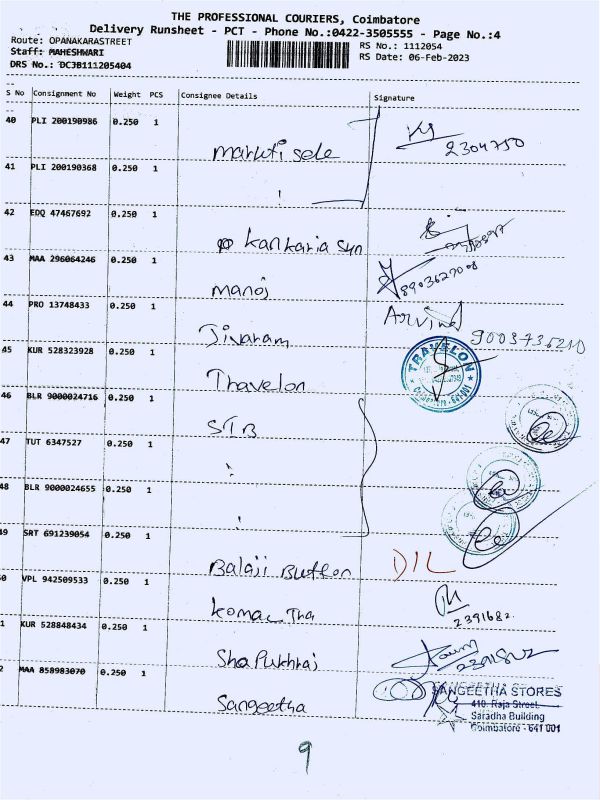 THE PROFESSIONAL COURIERS, Coimbatore
Delivery Runsheet - PCT - Phone No.:0422-3505555 - Page No.:4
Route: OPANAKARASTREET
RS No.: 1112054
Staff: MAHESHWARI
RS Date: 06-Feb-2023
DRS No.: DC3B111205404
S No Consignment No Weight PCS Consignee Details Signature
40 PLI 200190986 0.250 1 Maruti sele 2304750
41 PLI 200190368 0.250 1
42 EDQ 47467692 0.250 1 Kankaria Syn
43 MAA 296064246 0.250 1 Manoj 8903627008
44 PRO 13748433 0.250 1 Jivaram Arvind 9003736210
45 KUR 528323928 0.250 1 Thavelon TRAVELON
46 BLR 9000024716 0.250 1 STB
47 TUT 6347527 0.250 1
48 BLR 9000024655 0.250 1
49 SRT 691239054 0.250 1 Balaji Button DIL
0 VPL 942509533 0.250 1 Komal Tha 2391682
1 KUR 528848434 0.250 1 Sha Pukhraj
2 MAA 858983070 0.250 1 Sangeetha SANGEETHA STORES
410, Raja Street,
Saradha Building
Coimbatore - 641 001
9